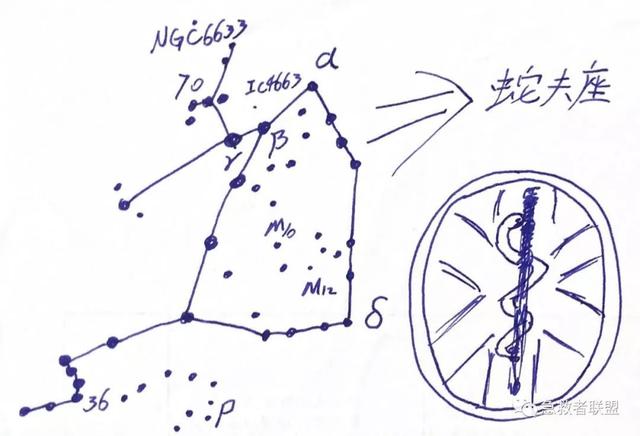 NGC6633
α
70
IC4663
蛇夫座
β
γ
M10
M12
δ
36
ρ
急救者联盟